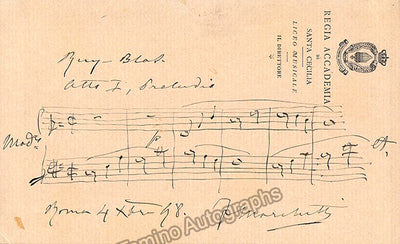 REGIA ACCADEMIA
DI
SANTA CECILIA
LICEO MUSICALE
IL DIRETTORE
Ruy-Blas
Atto I, Preludio
Mod.to
p
Roma 4 Xbre 98.
F. Marchetti
Tamino Autographs